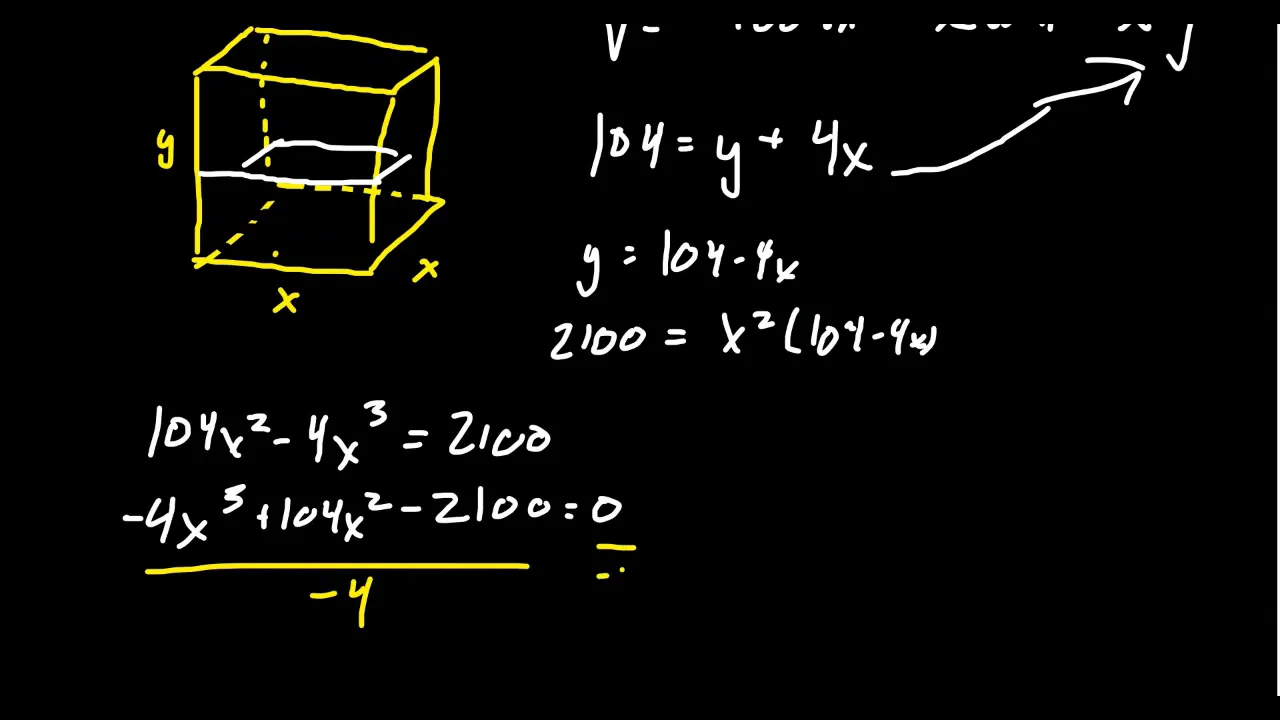 V =
104 = y + 4x
y
y = 104 - 4x
x
x
2100 = x² (104 - 4x)
104x² - 4x³ = 2100
-4x³ + 104x² - 2100 = 0
-4